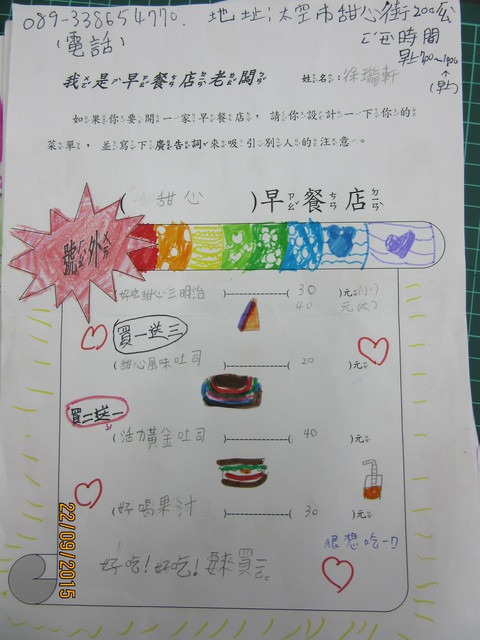 089-338654770. 地址:太空市甜心街200公
(電話)
時間
早上7:00~
(早上)
我是早餐店老闆
姓名:徐瑞軒
如果你要開一家早餐店,請你設計一下你的
菜單,並寫下廣告詞來吸引別人的注意。
(甜心)早餐店
號外
(好吃甜心三明治)----------(30)元(小)
40 元(大)
買一送三
(甜心風味吐司)----------(20)元
買二送一
(活力黃金吐司)----------(40)元
(好喝果汁)----------(30)元
很想吃一口
好吃!好吃!要來買ㄛ。
22/09/2015